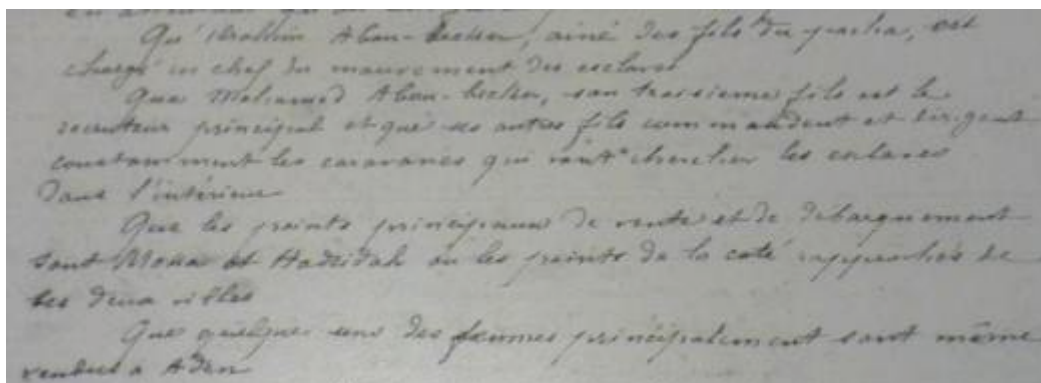 Qu'Ibrahim Abou-beker, ainé des fils du pacha, est
chargé en chef du mouvement des esclaves
Que Mohamed Abou-beker, son troisieme fils est le
recruteur principal et que ses autres fils commandent et dirigent
constamment les caravanes qui vont chercher les esclaves
dans l'intérieur
Que les points principaux de vente et de débarquement
sont Moka et Hadeidah ou les points de la coté rapprochés de
ces deux villes
Que quelques uns des femmes principalement sont même
vendus a Aden